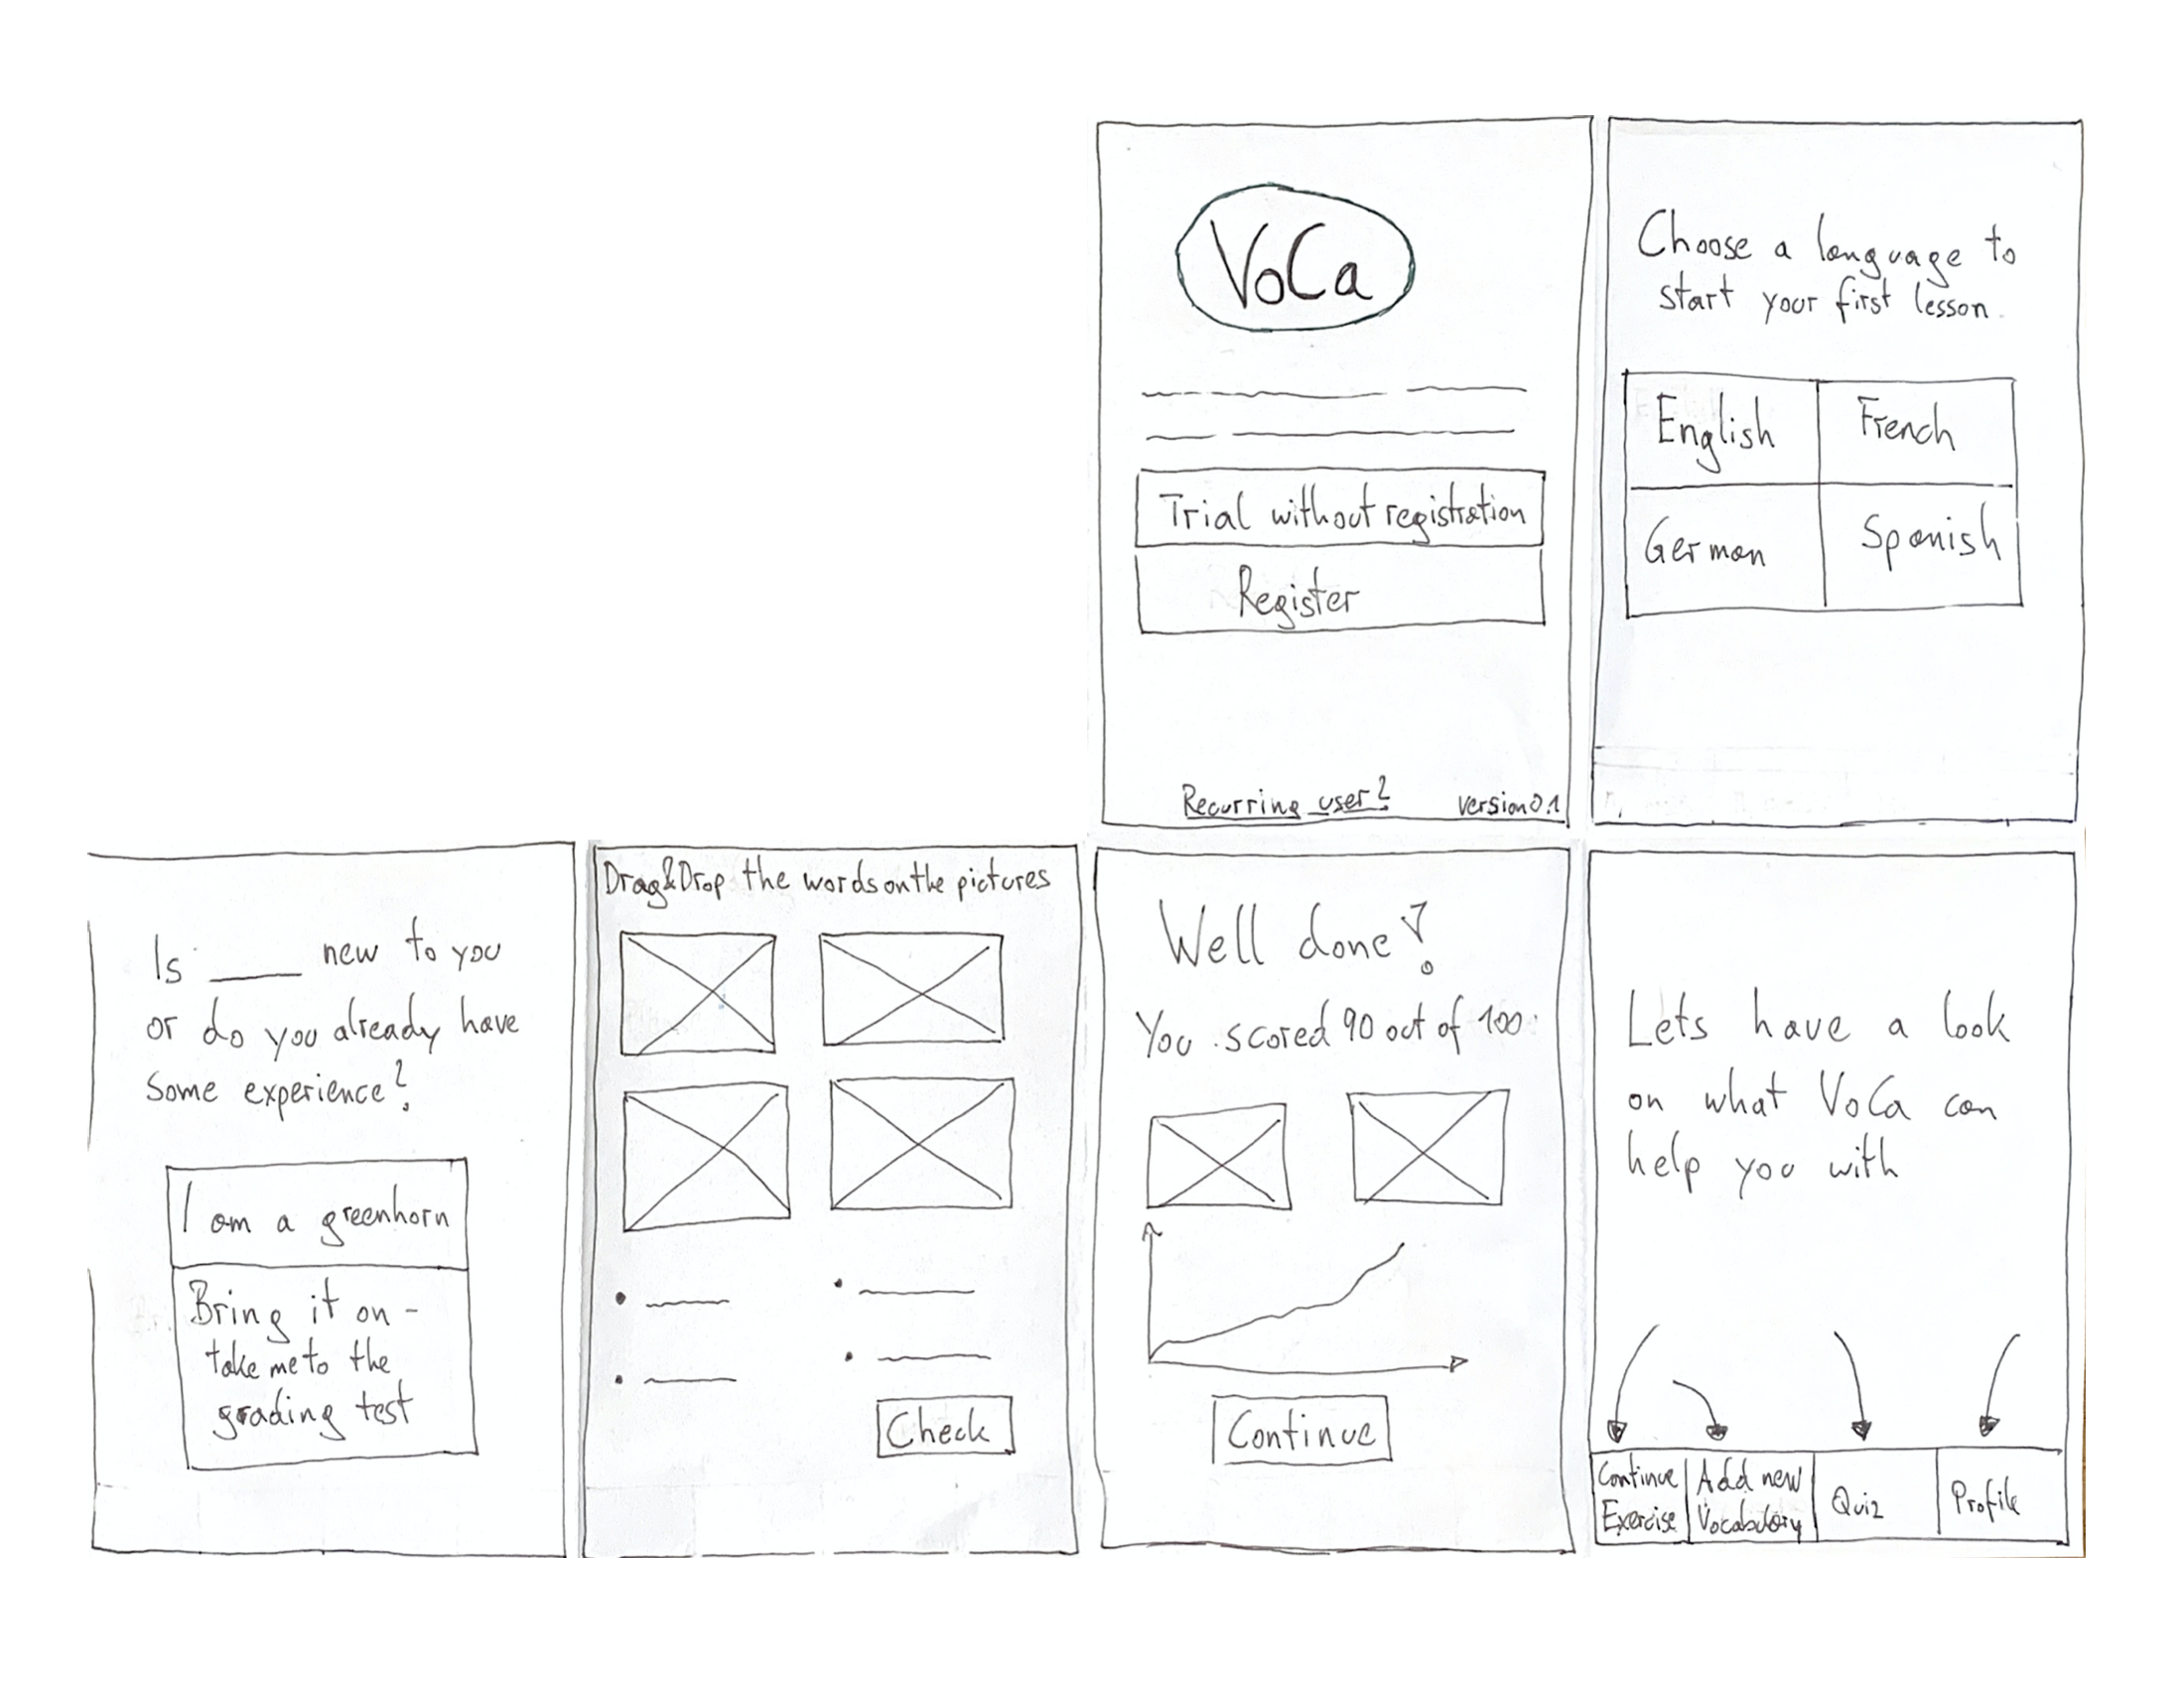 VoCa
Trial without registration
Register
Recurring user?
Version 0.1
Choose a language to
start your first lesson.
English
French
German
Spanish
Is ____ new to you
or do you already have
some experience?
I am a greenhorn
Bring it on -
take me to the
grading test
Drag&Drop the words on the pictures
Check
Well done!
You scored 90 out of 100.
Continue
Lets have a look
on what VoCa can
help you with
Continue
Exercise
Add new
Vocabulary
Quiz
Profile